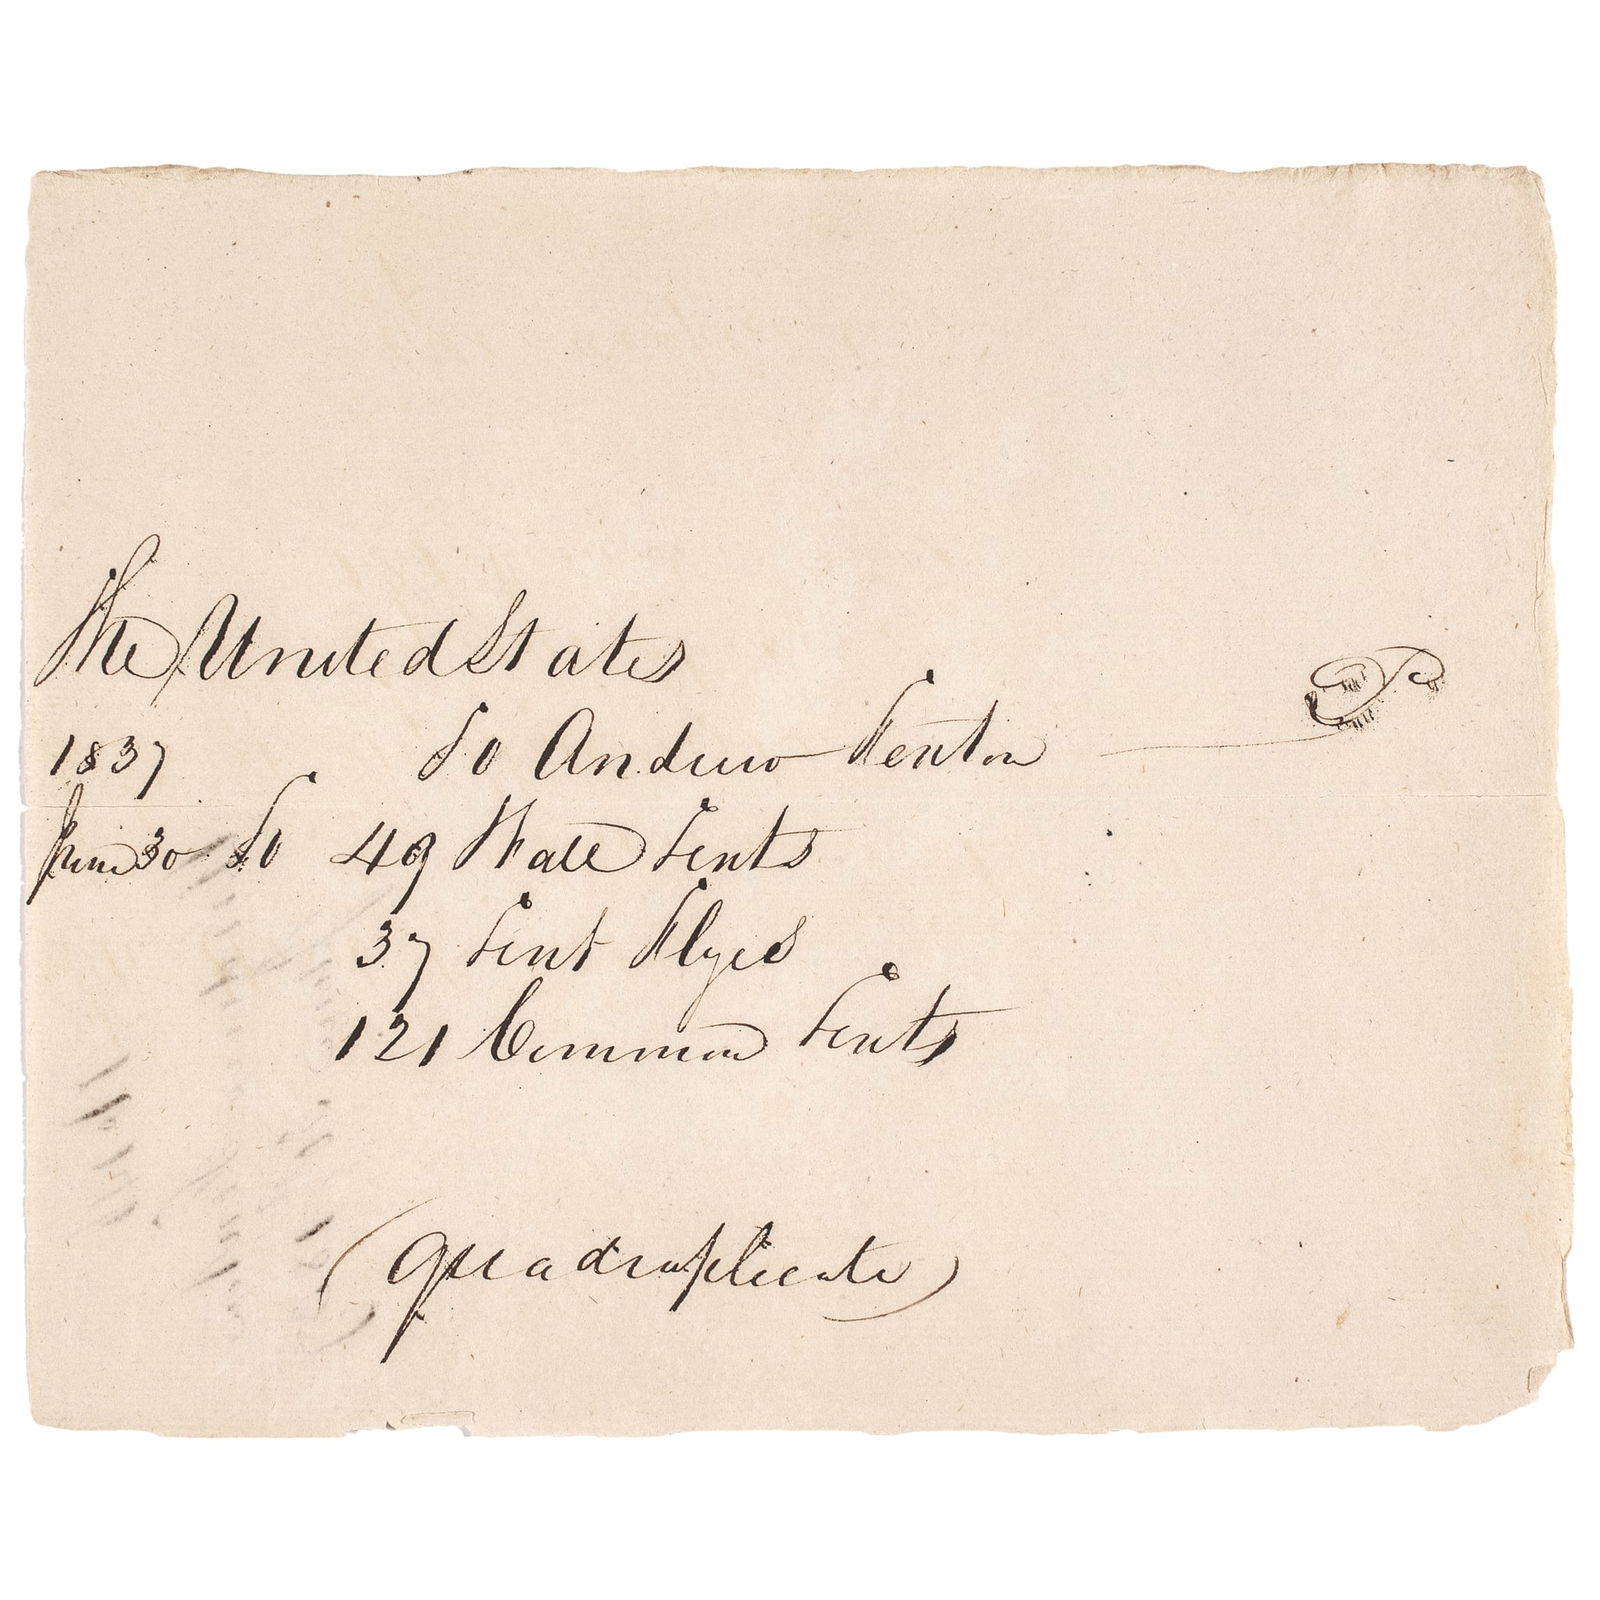 The United States
1837 To Andrew Fenton Dr
June 30 To 49 Wall Tents
37 Tent Flyes
121 Common Tents
(Quadruplicate)